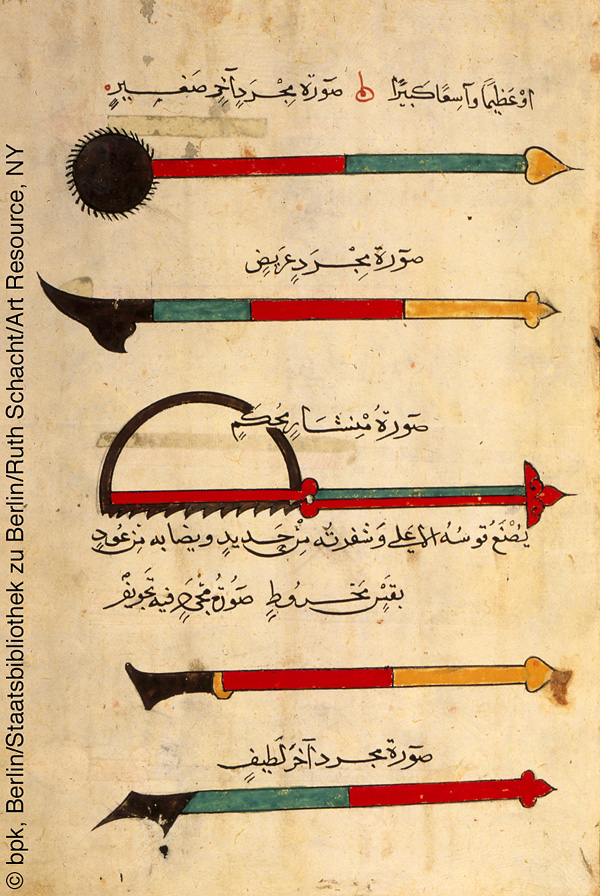 اوْ عَظِيمًا وَآسِعًا كَبِيرًا ه صَوَرة مِجْرَدٍ آخَرٍ صَغِيرٍ
صَوَرة مِجْرَدٍ عَرِيَضٍ
صَوَرةُ مِنْشَارٍ مُحُكَمٍ
يُصْنَعُ قوسُهُ الاعلي وَشَفرتُه مِنْ حَدِيدٍ ونِصَابه مِن عُودٍ
بَقَسٍ مَخرُوطٍ صَوَرة فيه تجويف
صَوَرة مجرد آخَرَ لَطِيفٍ
© bpk, Berlin/Staatsbibliothek zu Berlin/Ruth Schacht/Art Resource, NY